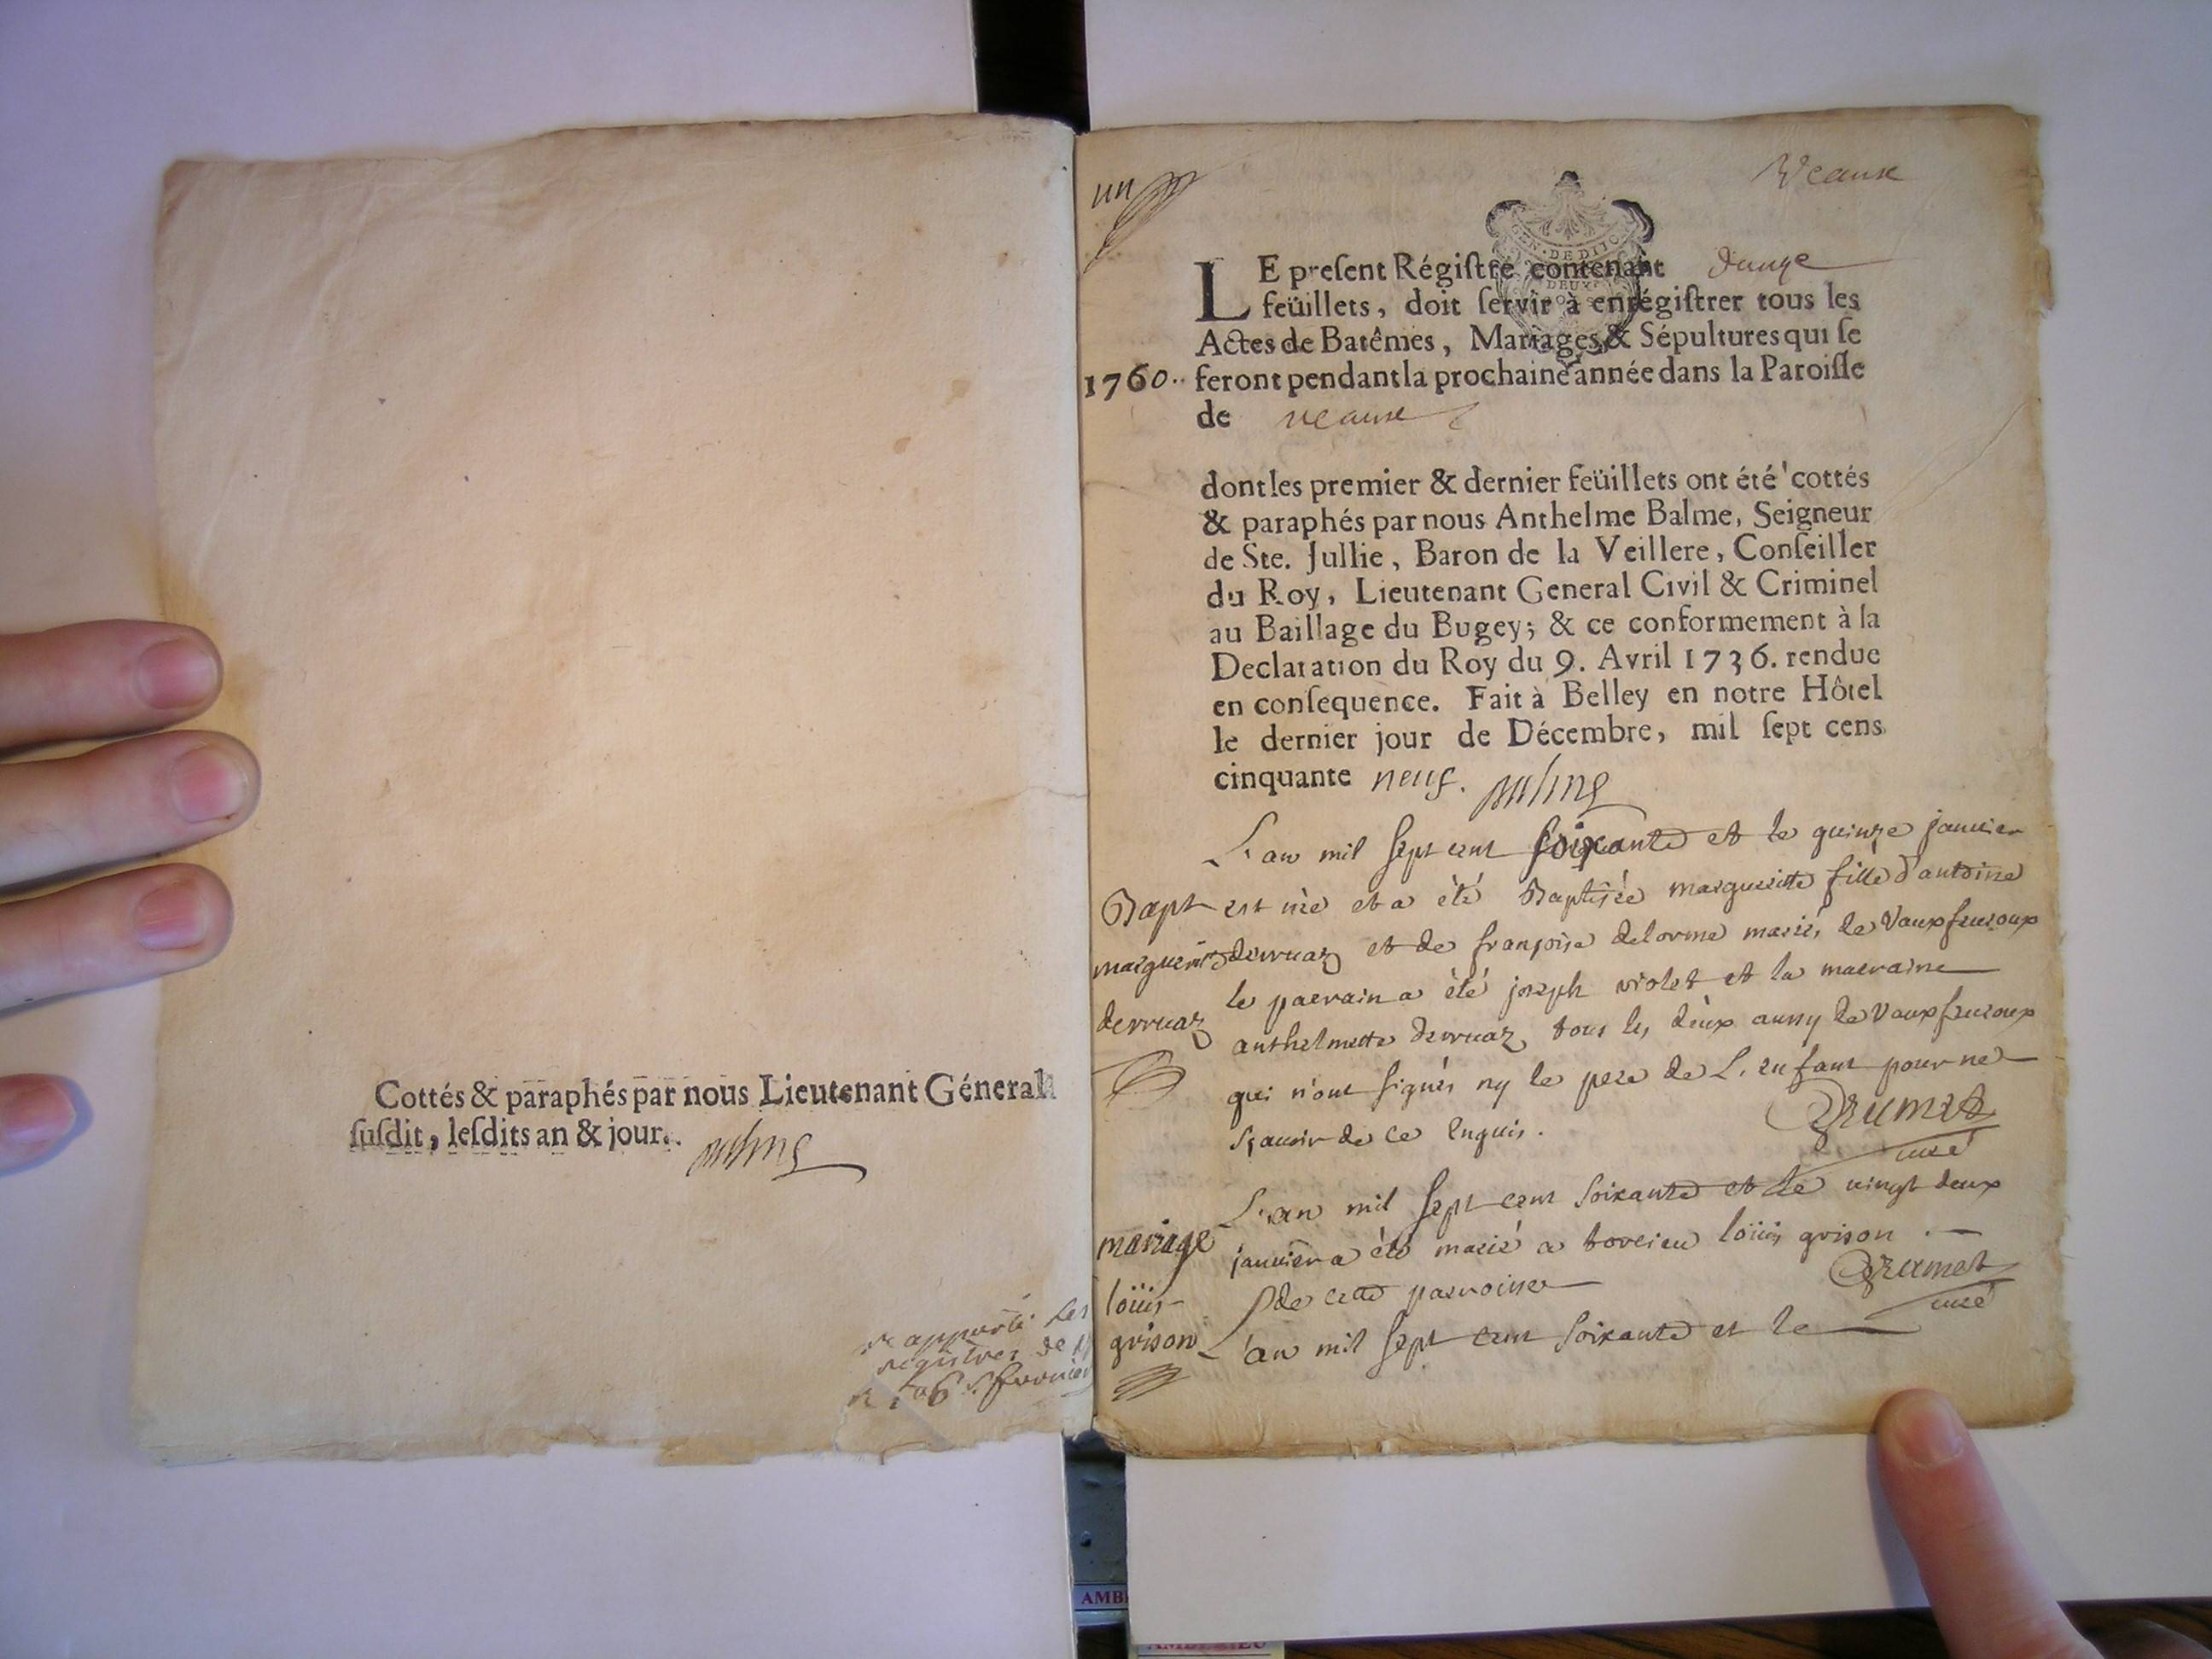 Cottés & paraphés par nous Lieutenant Géneral
ſuſdit, leſdits an & jour.
apporté les
registres de
fevrier
un
Veaux
GEN. DE DIJON
DEUX
LE preſent Régiſtre contenant douze
feüillets, doit ſervir à enrégiſtrer tous les
Actes de Batêmes, Mariages, & Sépultures qui ſe
1760.. feront pendant la prochaine année dans la Paroiſſe
de veaux
dont les premier & dernier feüillets ont été cottés
& paraphés par nous Anthelme Balme, Seigneur
de Ste. Jullie, Baron de la Veillere, Conſeiller
du Roy, Lieutenant General Civil & Criminel
au Baillage du Bugey; & ce conformement à la
Declaration du Roy du 9. Avril 1736. rendue
en conſequence. Fait à Belley en notre Hôtel
le dernier jour de Décembre, mil ſept cens
cinquante neuf. Balme
L'an mil sept cent soixante et le quinze janvier
Bapt est née et a été Baptisée margueritte fille d'antoine
derruaz et de françoise delorme mariés de Vauxfevroux
le parrain a été joseph violet et la marraine
derruaz anthelmette derruaz tous les deux aussy de Vauxfevroux
qui n'ont signés ny le pere de L'enfant pour ne
sçavoir de ce enquis. Grumet
curé
L'an mil sept cent soixante et le vingt deux
mariage janvier a été marié a torcieu loüis grison
loüis de cette parroisse Grumet
curé
grison L'an mil sept cent soixante et le
AMBE
AMBERIEU